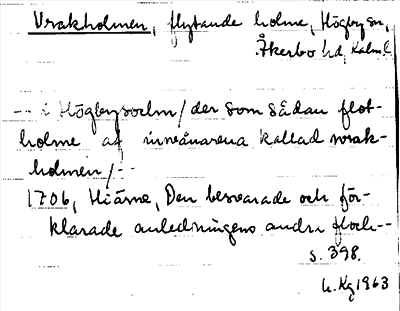 Vrakholmen, flytande holme, Högby sn,
Åkerbo hd, Kalm. l.
-- i Högbysochn / der som sådan flot-
holme af innvånarena kallad wrak-
holmen /--
1706, Hiärne, Den besvarade och för-
klarade anledningens andra flock--
s. 398.
1963